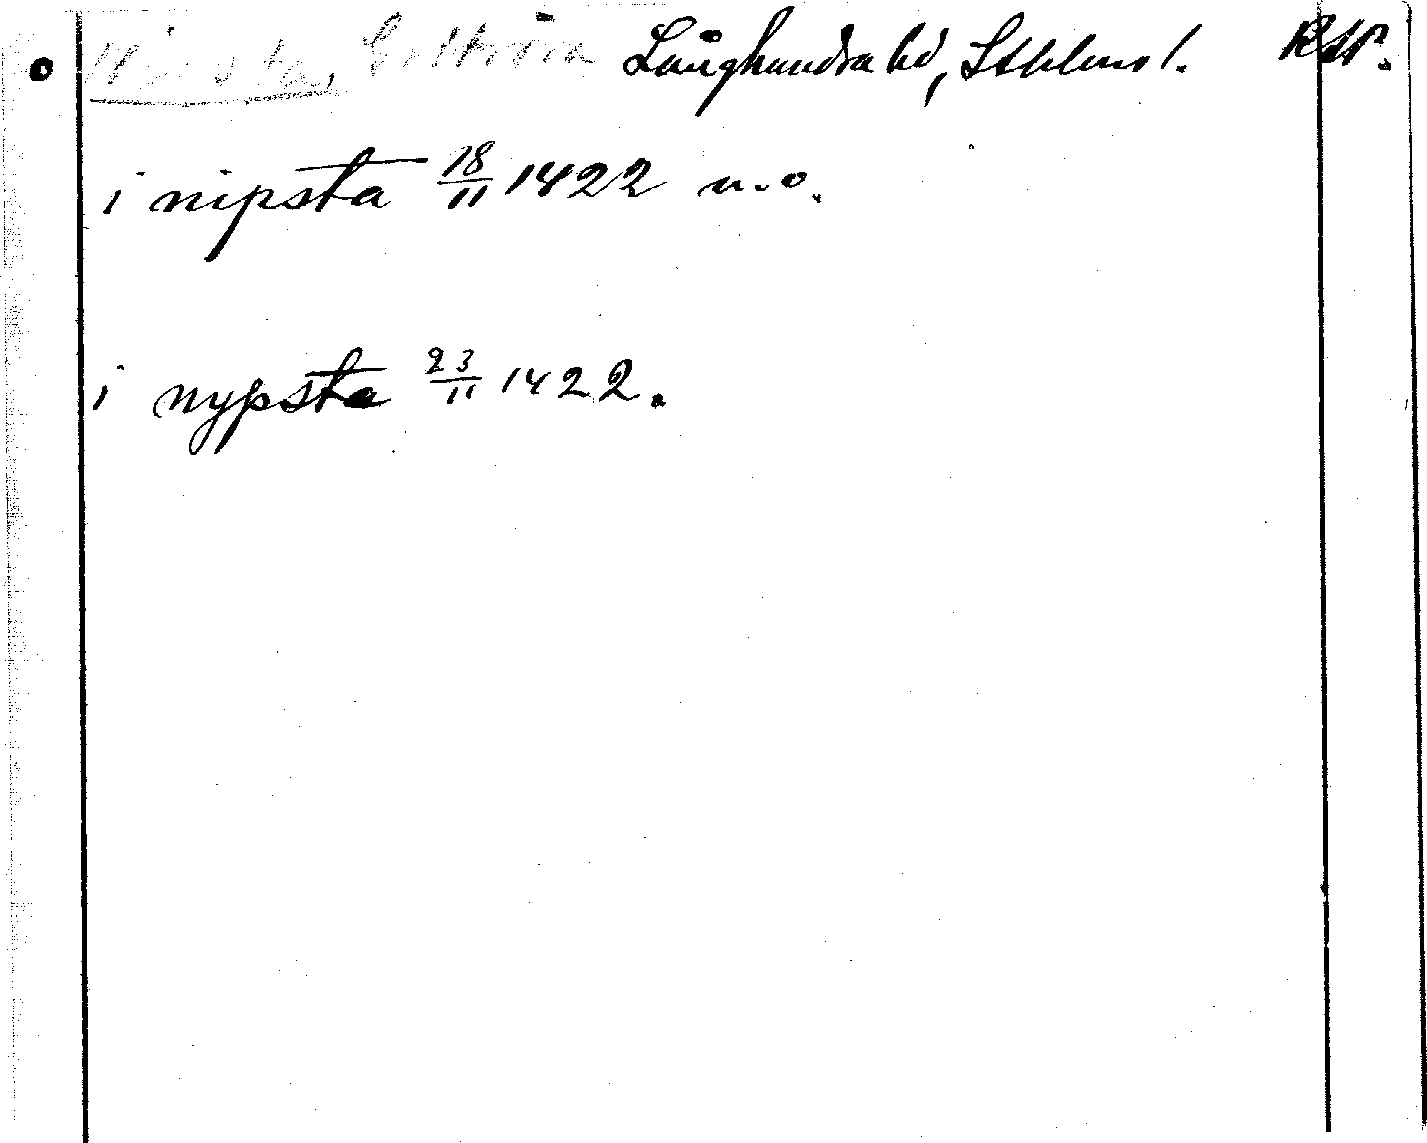 Långhundra hd, Sthlms l. RAP.
i nipsta 18/11 1422 u.o.
i nypsta 23/11 1422.